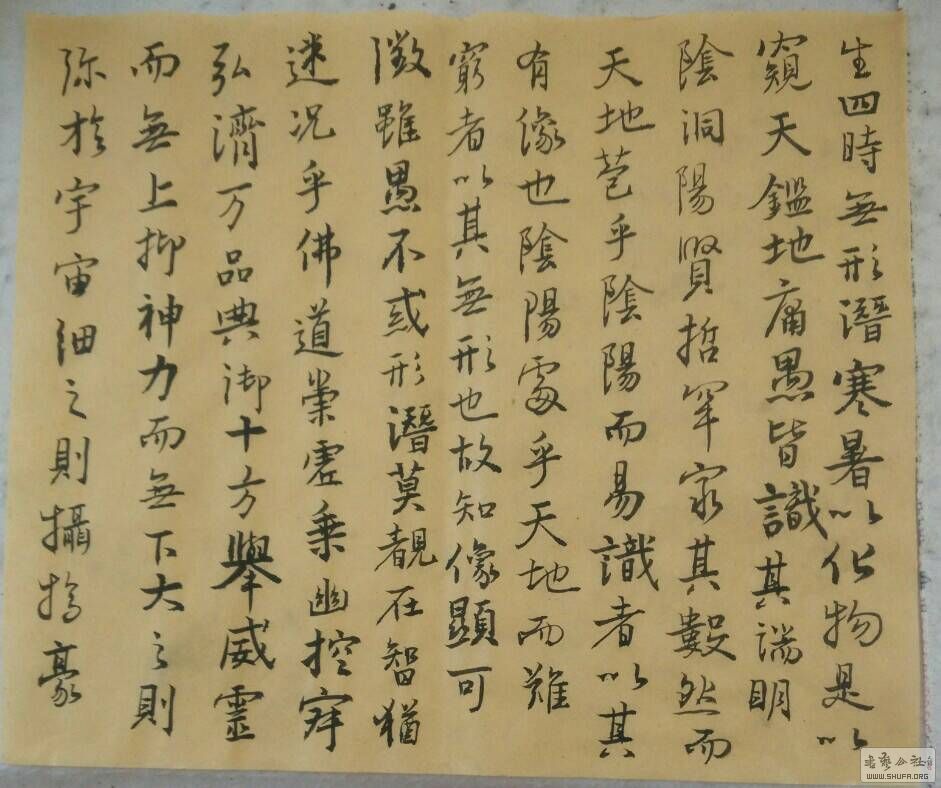 生四時無形潛寒暑以化物是以
窺天鑑地庸愚皆識其端明
陰洞陽賢哲罕窮其數然而
天地苞乎陰陽而易識者以其
有像也陰陽處乎天地而難
窮者以其無形也故知像顯可
徵雖愚不惑形潛莫覩在智猶
迷況乎佛道崇虛乗幽控寂
弘濟万品典御十方舉威靈
而無上抑神力而無下大之則
弥於宇宙細之則攝於豪
書藝公社
WWW.SHUFA.ORG